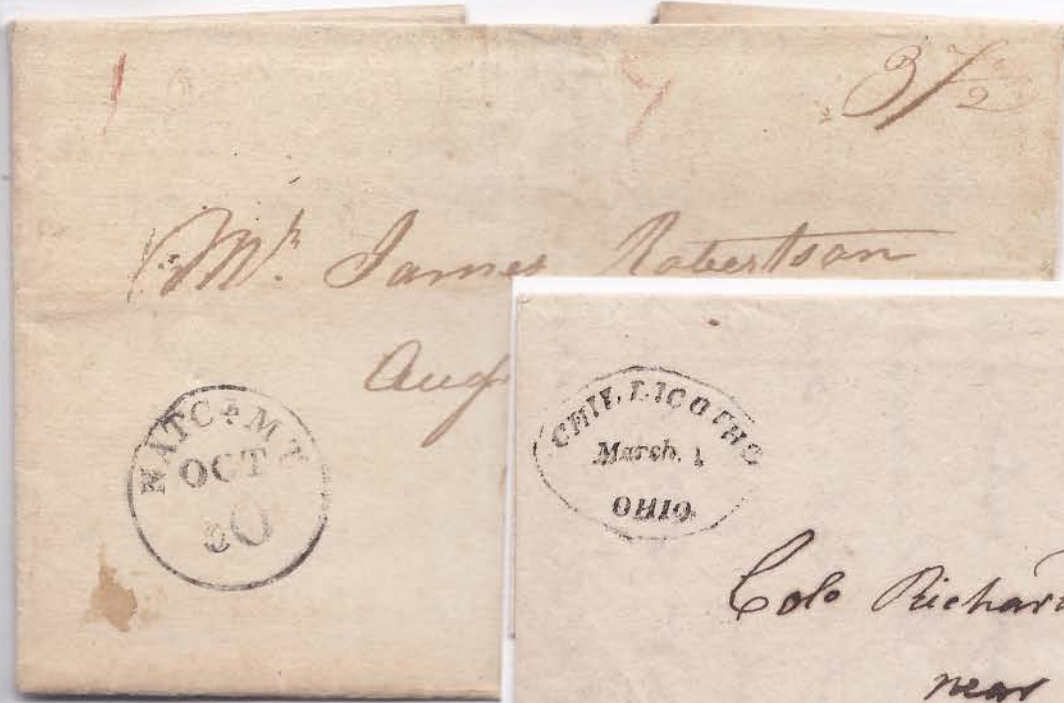 37½
Mr. James Robertson
Aug
NATC★MT
OCT
30
CHILLICOTHO
March. 1
OHIO
Colo Richar
near